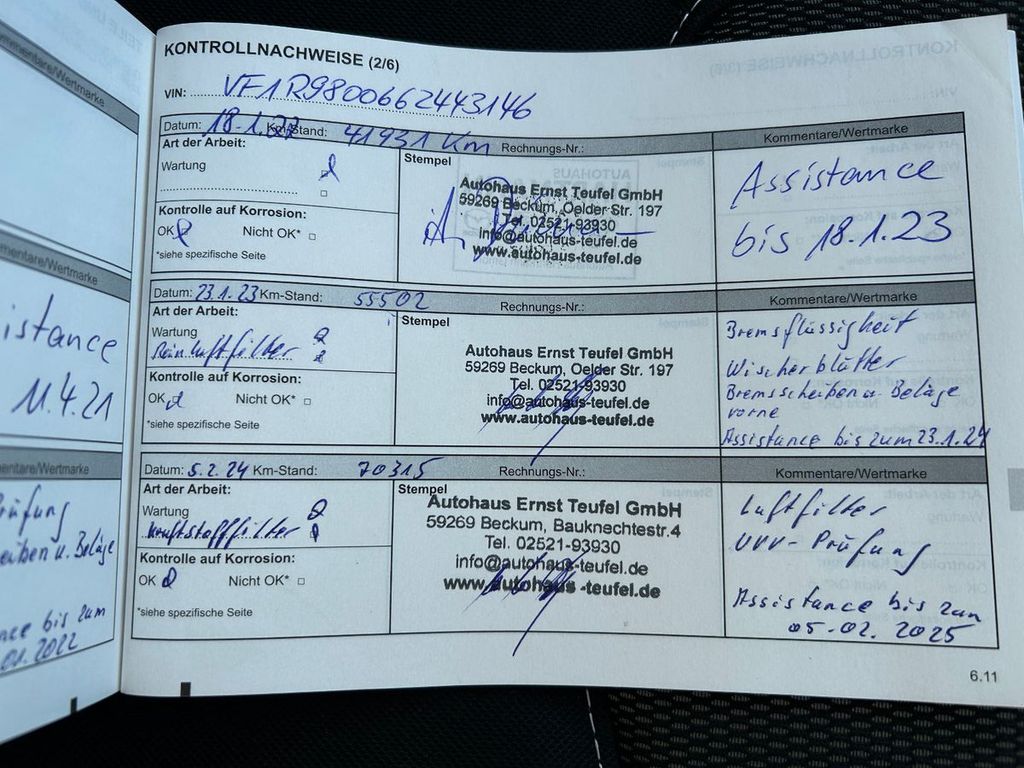 KONTROLLNACHWEISE (2/6)
VIN: VF1R9800662443146
Datum: 18.1.22 Km-Stand: 41931 Km Rechnungs-Nr.: Kommentare/Wertmarke
Art der Arbeit:
Wartung
Stempel
Autohaus Ernst Teufel GmbH
59269 Beckum, Oelder Str. 197
Tel. 02521-93930
info@autohaus-teufel.de
www.autohaus-teufel.de
Assistance
bis 18.1.23
Kontrolle auf Korrosion:
OK Nicht OK*
*siehe spezifische Seite
Datum: 23.1.23 Km-Stand: 55502 Rechnungs-Nr.: Kommentare/Wertmarke
Art der Arbeit:
Wartung
Reinluftfilter
Stempel
Autohaus Ernst Teufel GmbH
59269 Beckum, Oelder Str. 197
Tel. 02521-93930
info@autohaus-teufel.de
www.autohaus-teufel.de
Bremsflüssigkeit
Wischerblätter
Bremsscheiben u. Beläge
vorne
Assistance bis zum 23.1.24
Kontrolle auf Korrosion:
OK Nicht OK*
*siehe spezifische Seite
Datum: 5.2.24 Km-Stand: 70315 Rechnungs-Nr.: Kommentare/Wertmarke
Art der Arbeit:
Wartung
Kraftstofffilter
Stempel
Autohaus Ernst Teufel GmbH
59269 Beckum, Bauknechtestr.4
Tel. 02521-93930
info@autohaus-teufel.de
www.autohaus -teufel.de
Luftfilter
UVV-Prüfung
Assistance bis zum
05.02.2025
Kontrolle auf Korrosion:
OK Nicht OK*
*siehe spezifische Seite
6.11
mmentare/Wertmarke
mentare/Wertmarke
istance
11.4.21
mentare/Wertmarke
rüfung
eiben u. Beläge
nce bis zum
01.2022